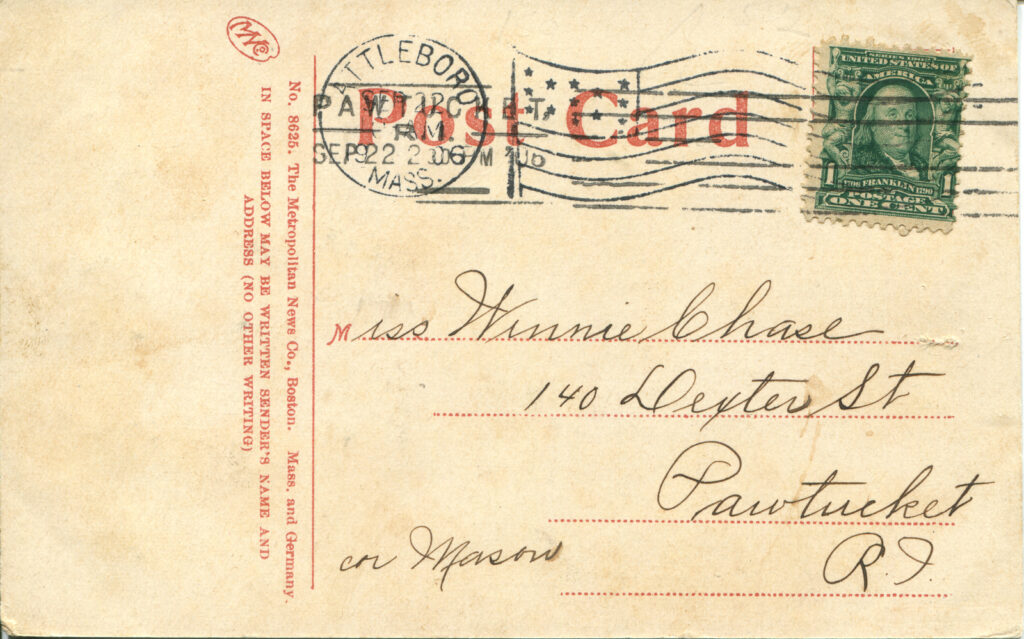 Post Card
ATTLEBORO
MASS.
PAWTUCKET
SEP 22
SERIES 1902
UNITED STATES OF
AMERICA
1706 FRANKLIN 1790
1 POSTAGE 1
ONE CENT
No. 8625. The Metropolitan News Co., Boston. Mass. and Germany.
IN SPACE BELOW MAY BE WRITTEN SENDER'S NAME AND
ADDRESS (NO OTHER WRITING)
Miss Winnie Chase
140 Dexter St
Pawtucket
R.I.
cor Mason